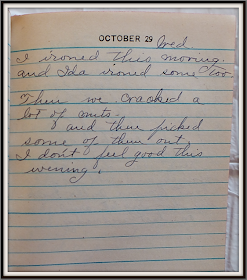 OCTOBER 29 Wed.
I ironed this moring.
and Ida ironed some too.
Then we cracked a
lot of nuts.
and then picked
some of them out.
I don't feel good this
evening.